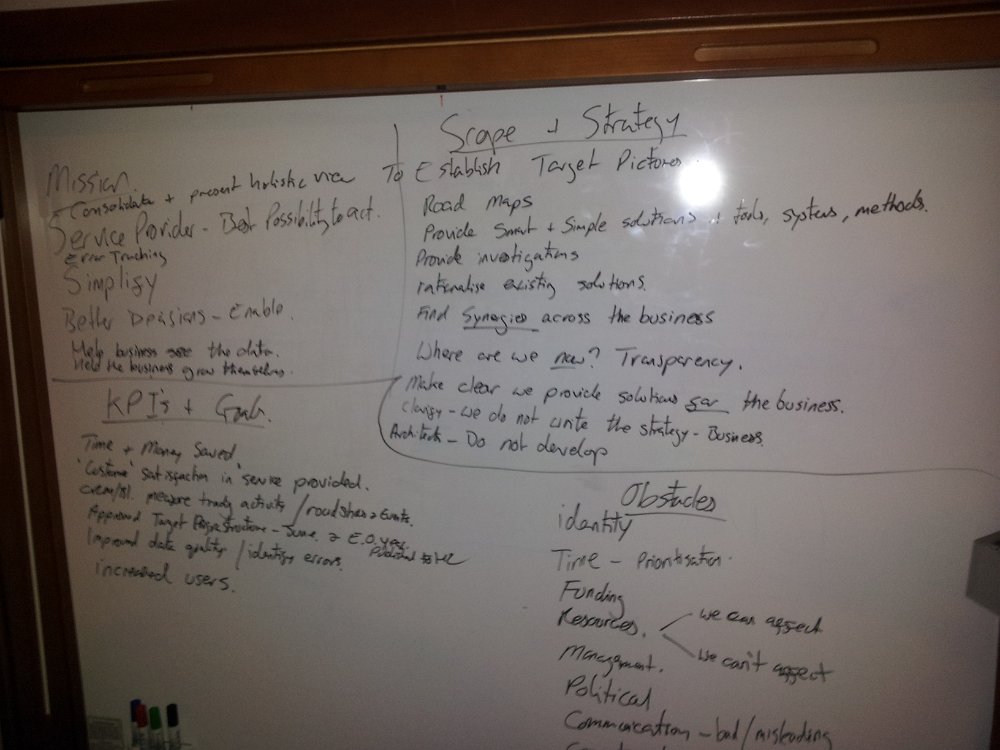 Mission
Consolidate + present holistic view
Service Provider - Best Possibility to act.
Error Tracking
Simplify
Better Decisions - Enable.
Help business see the data.
Held the business grow themselves.
KPI's + Goals.
Time + Money Saved
"Customer" satisfaction in service provided.
measure trady activity / roadshows + Events.
Approved Target - June. 2 E.O. year.
Improved data quality / identify errors. Published to
increased users.
Scope + Strategy
To Establish Target Pictures
Road Maps
Provide Smart + Simple solutions + tools, systems, methods.
Provide investigations
rationalise existing solutions.
Find Synergies across the business
Where are we now? Transparency.
Make clear we provide solutions for the business.
Clarify - we do not write the strategy - Business.
Architects - Do not develop
Obstacles
identity
Time - Prioritisation.
Funding
Resources. we can affect
we can't affect
Management.
Political
Communication - bad/misleading